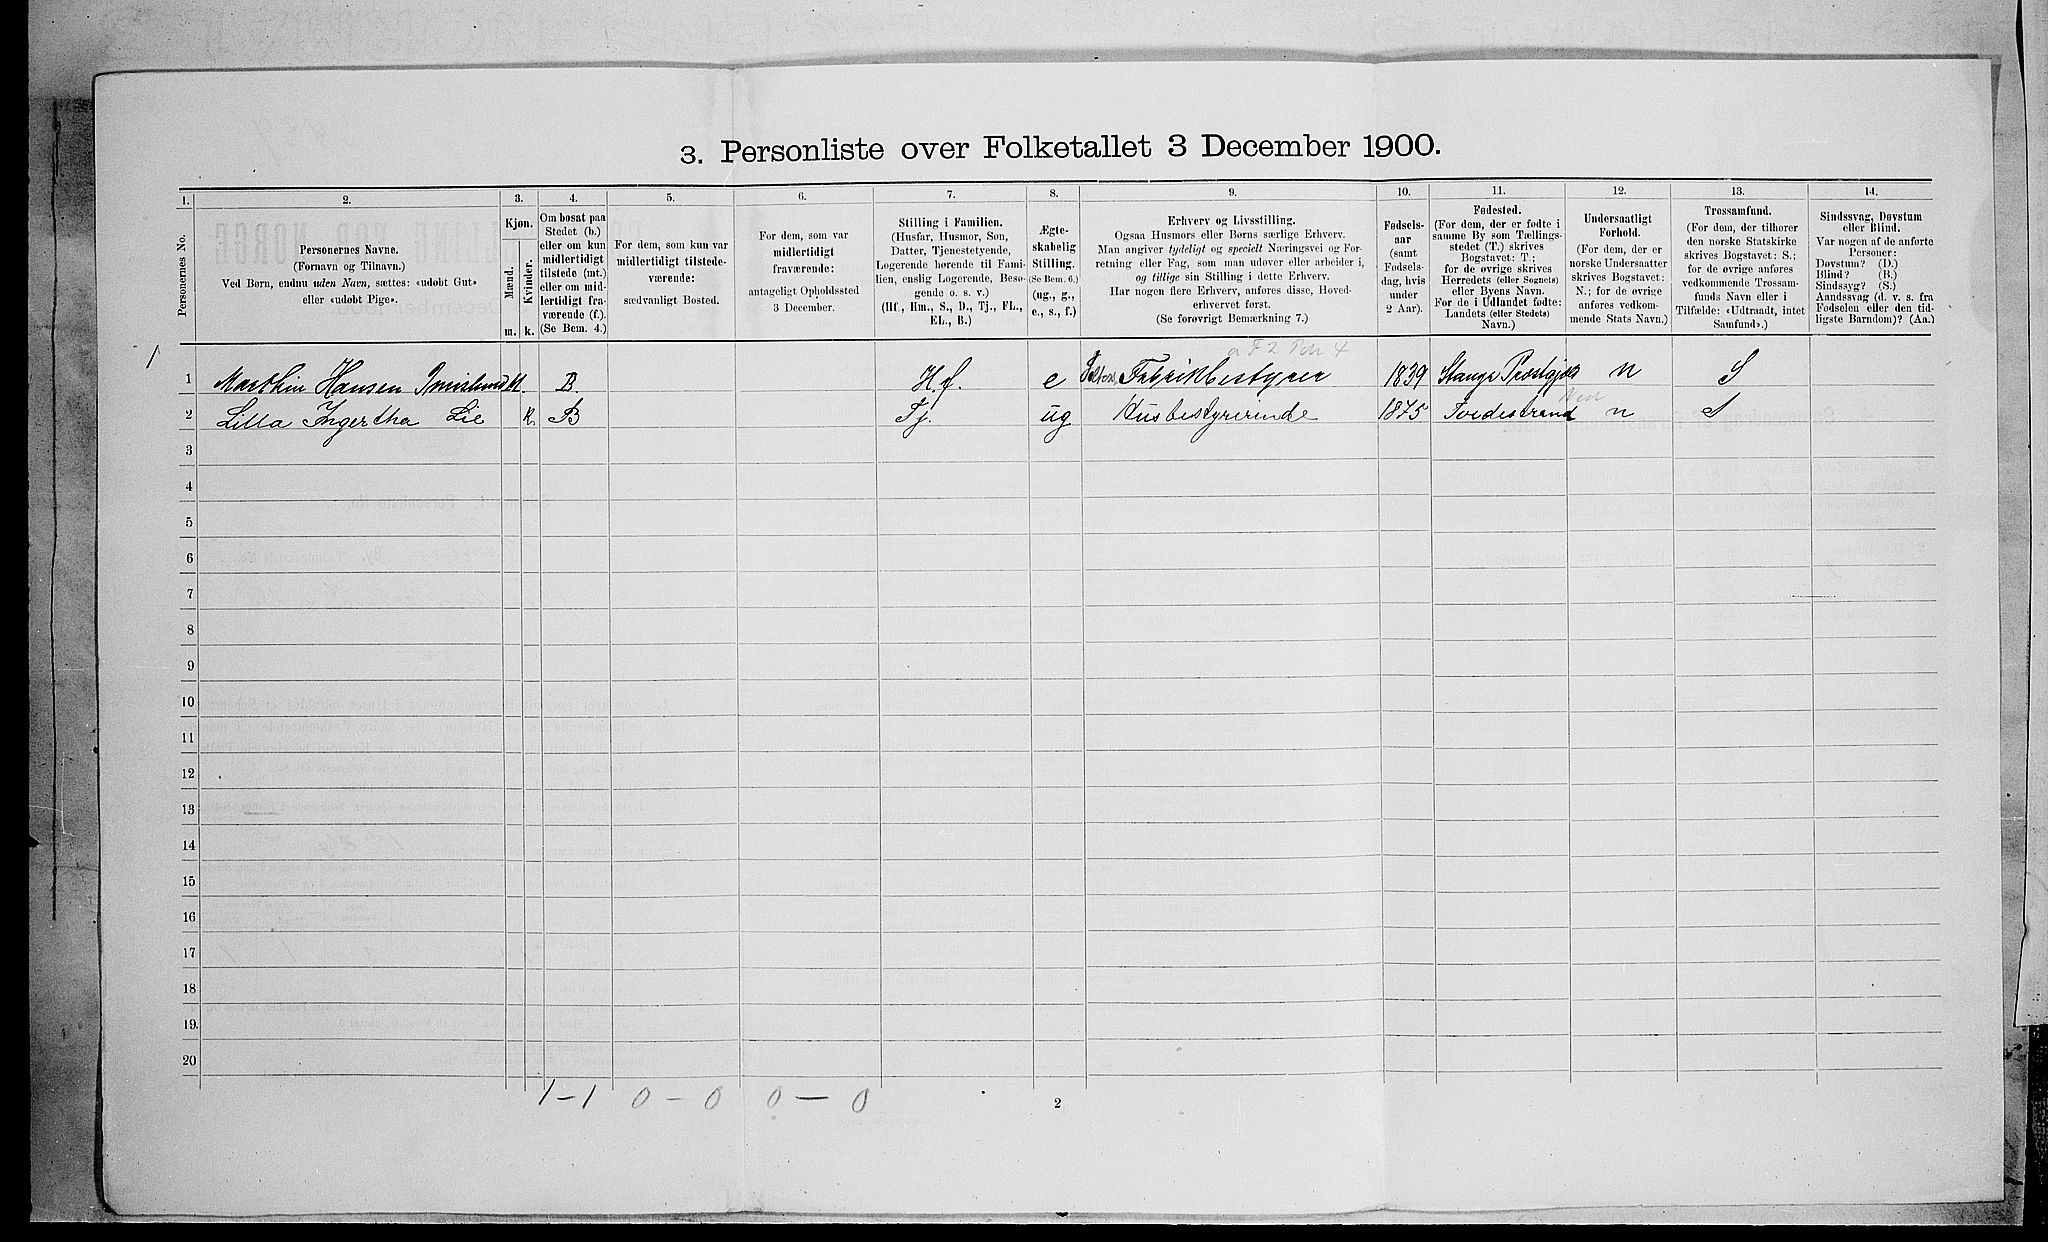 3. Personliste over Folketallet 3 December 1900.
1. 2. 3. 4. 5. 6. 7. 8. 9. 10. 11. 12. 13. 14.
Personernes No.
Personernes Navne.
(Fornavn og Tilnavn.)
Ved Børn, endnu uden Navn, sættes: «udøbt Gut»
eller «udøbt Pige».
Kjøn.
Mænd.
Kvinder.
m. k.
Om bosat paa
Stedet (b.)
eller om kun
midlertidigt
tilstede (mt.)
eller om mid-
lertidigt fra-
værende (f.).
(Se Bem. 4.)
For dem, som kun var
midlertidigt tilstede-
værende:
sædvanligt Bosted.
For dem, som var
midlertidigt
fraværende:
antageligt Opholdssted
3 December.
Stilling i Familien.
(Husfar, Husmor, Søn,
Datter, Tjenestetyende,
Logerende hørende til Fami-
lien, enslig Logerende, Besø-
gende o. s. v.)
(Hf., Hm., S., D., Tj., FL.,
EL., B.)
Ægte-
skabelig
Stilling.
(Se Bem. 6.)
(ug., g.,
e., s., f.)
Erhverv og Livsstilling.
Ogsaa Husmors eller Børns særlige Erhverv.
Man angiver tydeligt og specielt Næringsvei og For-
retning eller Fag, som man udøver eller arbeider i,
og tillige sin Stilling i dette Erhverv.
Har nogen flere Erhverv, anføres disse, Hoved-
erhvervet først.
(Se forøvrigt Bemærkning 7.)
Fødsels-
aar
(samt
Fødsels-
dag, hvis
under
2 Aar).
Fødested.
(For dem, der er fødte i
samme By som Tællings-
stedet (T.) skrives
Bogstavet: T.;
for de øvrige skrives
Herredets (eller Sognets)
eller Byens Navn.
For de i Udlandet fødte:
Landets (eller Stedets)
Navn.)
Undersaatligt
Forhold.
(For dem, der er
norske Undersaatter
skrives Bogstavet:
N.; for de øvrige
anføres vedkom-
mende Stats Navn.)
Trossamfund.
(For dem, der tilhører
den norske Statskirke
skrives Bogstavet: S.;
for de øvrige anføres
vedkommende Trossam-
funds Navn eller i
Tilfælde: «Udtraadt, intet
Samfund».)
Sindssvag, Døvstum
eller Blind.
Var nogen af de anførte
Personer:
Døvstum? (D.)
Blind? (B.)
Sindssyg? (S.)
Aandssvag (d. v. s. fra
Fødselen eller den tid-
ligste Barndom)? (Aa.)
1
1 Marthin Hansen M. B Hf. e Fabrikbestyrer 1839 Stange n S
2 Lilla Ingertha Lie k B Tj. ug Husbestyrerinde 1875 Tvedestrand n S
3
4
5
6
7
8
9
10
11
12
13
14
15
16
17
18
19
20
1 - 1 0 - 0 0 — 0
2